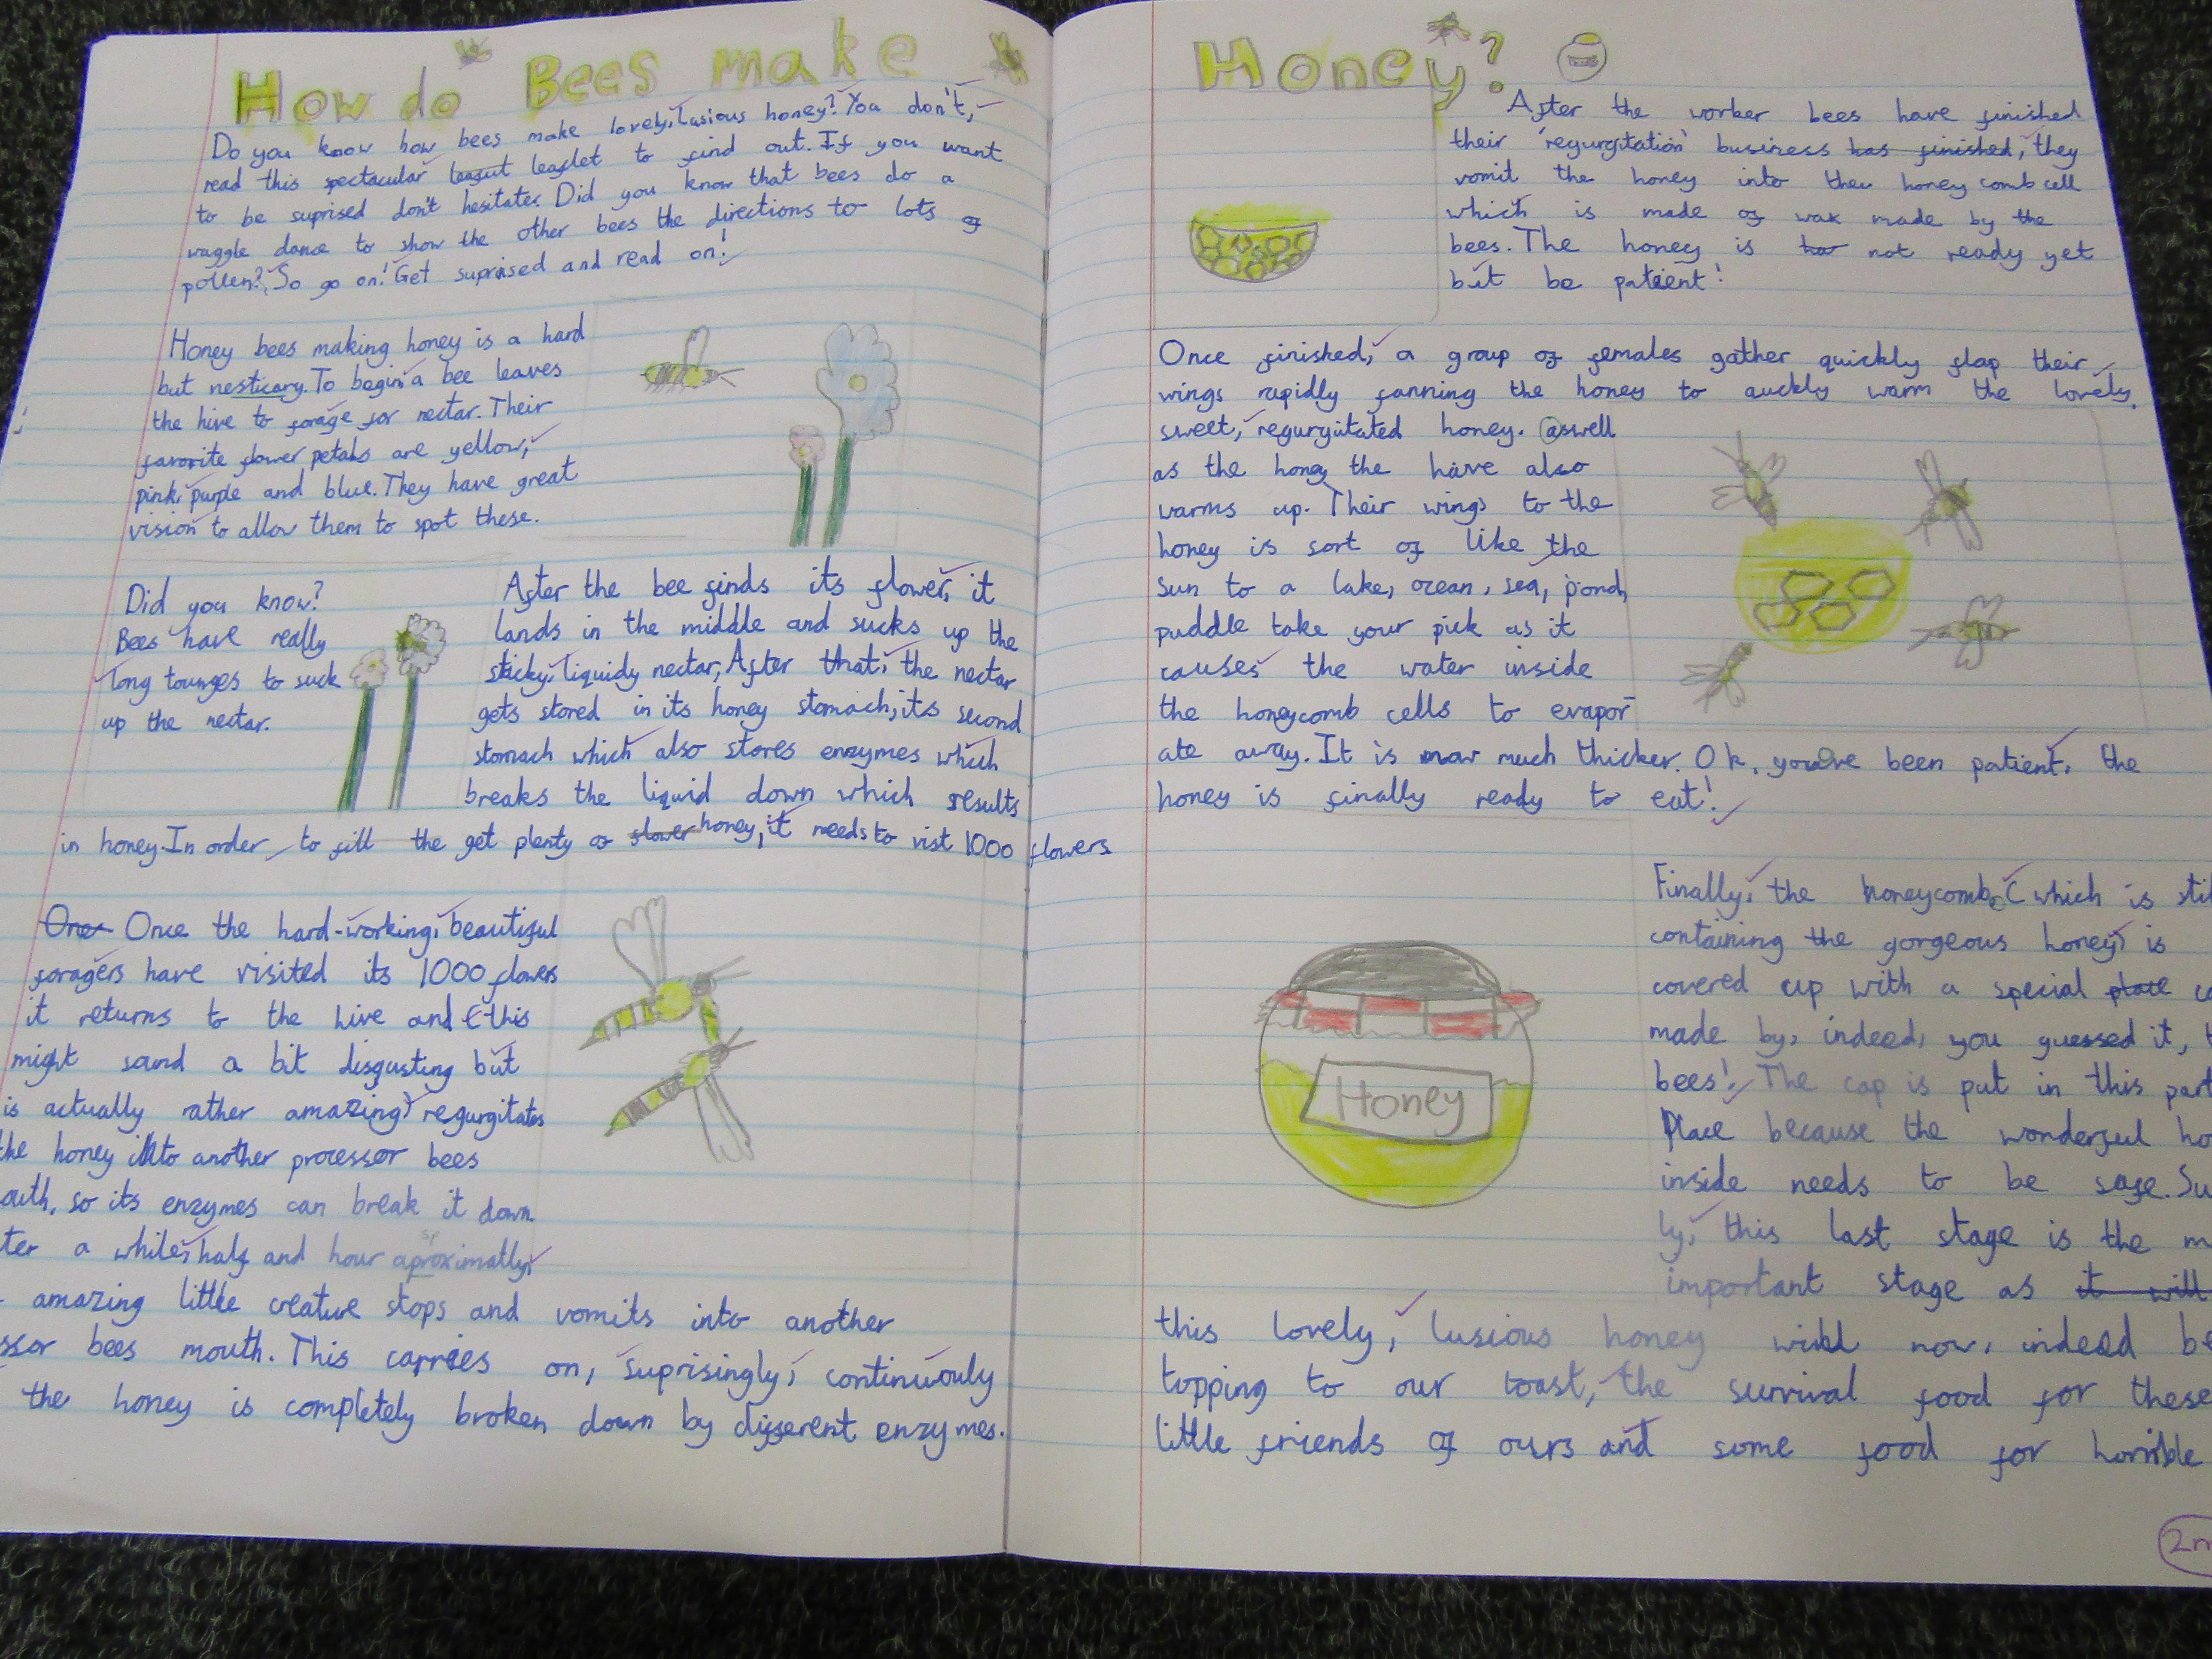 How do Bees make
Do you know how bees make lovely, lusious honey? You don't,
read this spectacular leaflet to find out. If you want
to be suprised don't hesitate. Did you know that bees do a
waggle dance to show the other bees the directions to lots of
pollen? So go on! Get suprised and read on!
Honey bees making honey is a hard
but nesticary. To begin a bee leaves
the hive to forage for nectar. Their
favorite flower petals are yellow,
pink, purple and blue. They have great
vision to allow them to spot these.
Did you know?
Bees have really
long tounges to suck
up the nectar.
After the bee finds its flower, it
lands in the middle and sucks up the
sticky, liquidy nectar, After that, the nectar
gets stored in its honey stomach; its second
stomach which also stores enzymes which
breaks the liquid down which results
in honey. In order to fill the get plenty of flower honey, it needs to vist 1000 flowers
One Once the hard-working, beautiful
foragers have visited its 1000 flowers
it returns to the hive and (this
might sound a bit disgusting but
is actually rather amazing) regurgitates
the honey into another processor bees
outh, so its enzymes can break it down.
ter a while, half and hour aproximatly,
sp
amazing little creature stops and vomits into another
ssor bees mouth. This carries on, suprisingly, continuouly
the honey is completely broken down by different enzymes.
Honey?
After the worker bees have finished
their 'regurgitation' business has finished, they
vomit the honey into the honey comb cell
which is made of wax made by the
bees. The honey is not ready yet
but be patient!
Once finished, a group of females gather quickly flap their
wings rapidly fanning the honey to quckly warm the lovely,
sweet, regurgitated honey. aswell
as the honey the have also
warms up. Their wings to the
honey is sort of like the
sun to a lake, ocean, sea, pond,
puddle take your pick as it
causes the water inside
the honeycomb cells to evapor-
ate away. It is now much thicker. Ok, you've been patient, the
honey is finally ready to eat!
Finally, the honeycomb (which is stil
containing the gorgeous honey) is
covered up with a special place c
made by, indeed, you guessed it, t
bees! The cap is put in this part
Place because the wonderful ho
inside needs to be safe. Su
ly, this last stage is the m
important stage as it will
this lovely, lusious honey will now, indeed be
topping to our toast, the survival food for these
little friends of ours and some food for horrible
Honey
2m